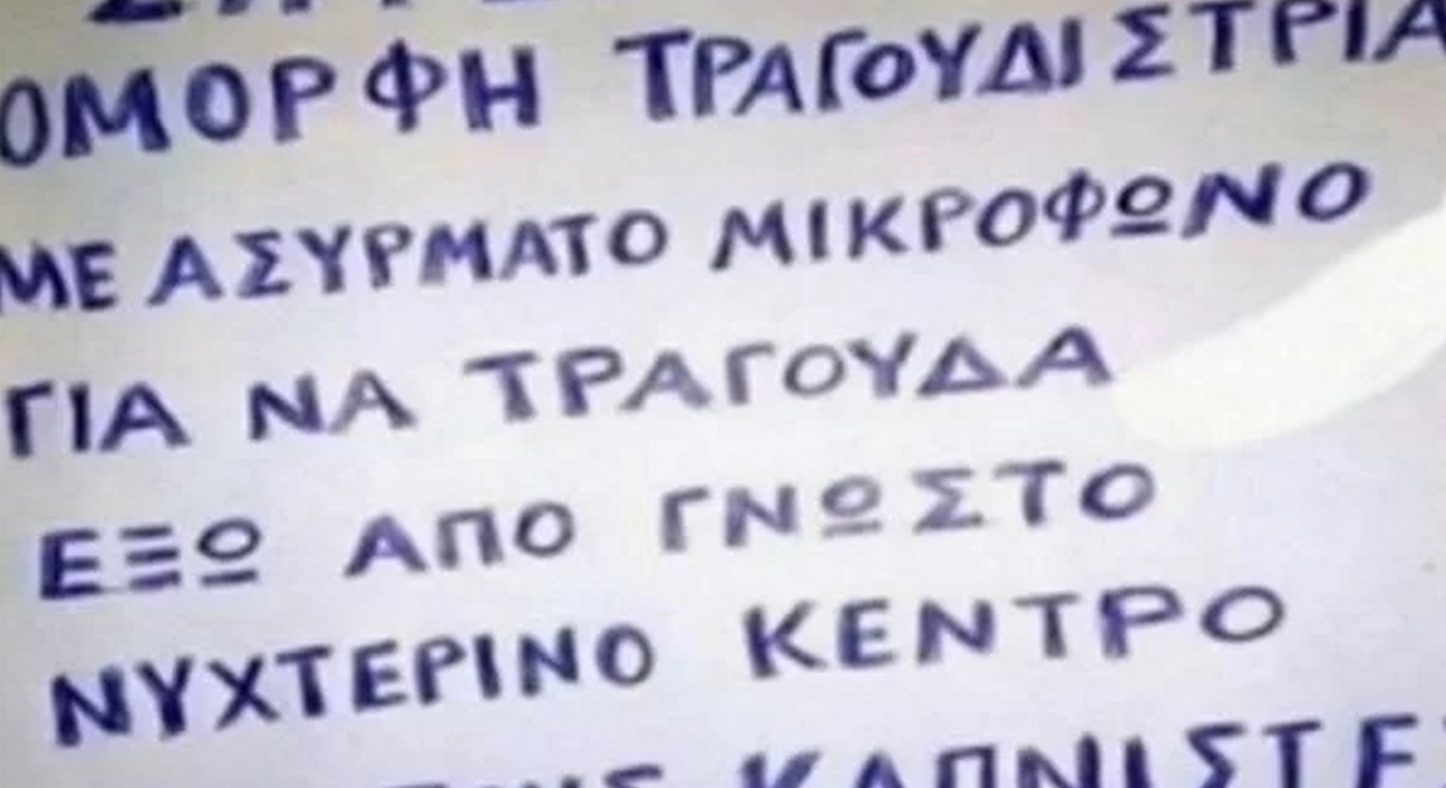 ΟΜΟΡΦΗ ΤΡΑΓΟΥΔΙΣΤΡΙΑ
ΜΕ ΑΣΥΡΜΑΤΟ ΜΙΚΡΟΦΩΝΟ
ΓΙΑ ΝΑ ΤΡΑΓΟΥΔΑ
ΕΞΩ ΑΠΟ ΓΝΩΣΤΟ
ΝΥΧΤΕΡΙΝΟ ΚΕΝΤΡΟ